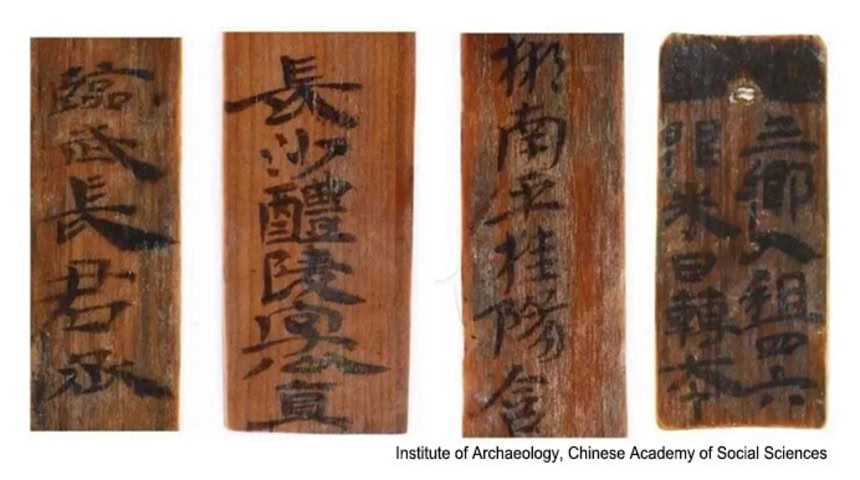 臨武長君丞
長沙醴陵
郴南平桂陽含
三鄉入租四六
米日轉
Institute of Archaeology, Chinese Academy of Social Sciences